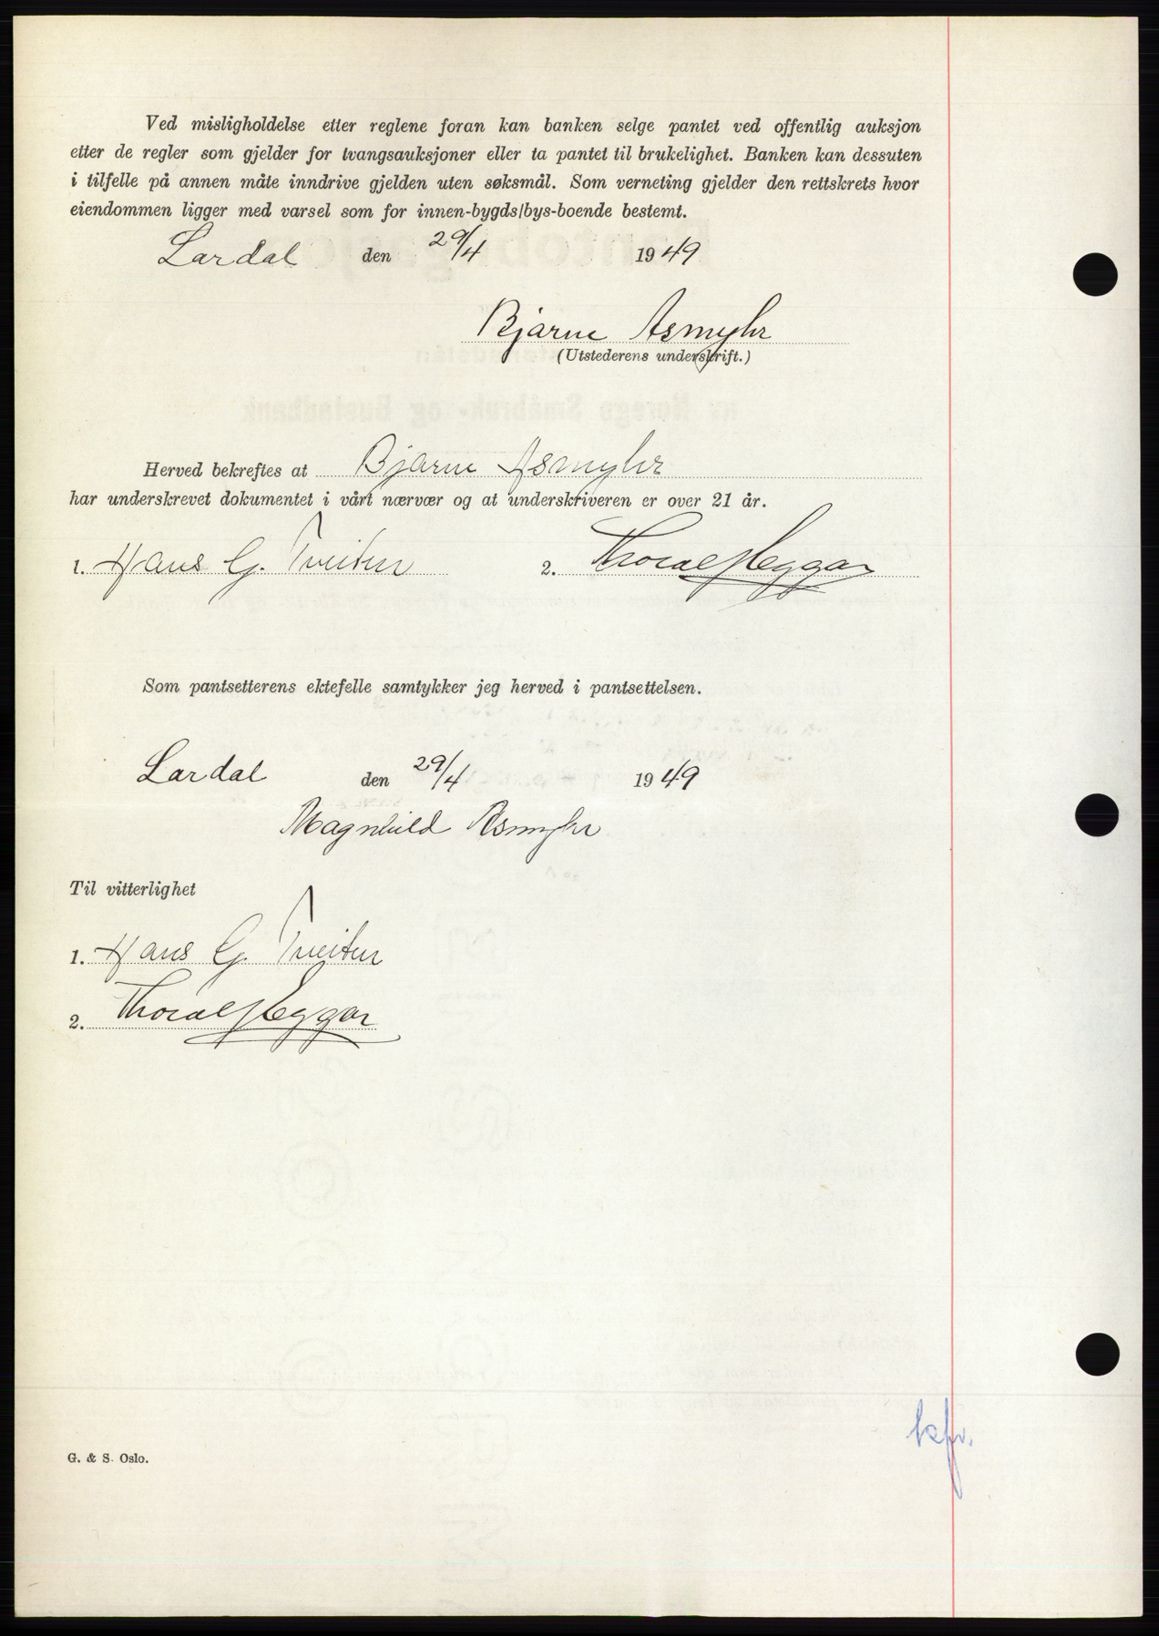 Ved misligholdelse etter reglene foran kan banken selge pantet ved offentlig auksjon
etter de regler som gjelder for tvangsauksjoner eller ta pantet til brukelighet. Banken kan dessuten
i tilfelle på annen måte inndrive gjelden uten søksmål. Som verneting gjelder den rettskrets hvor
eiendommen ligger med varsel som for innen-bygds/bys-boende bestemt.
Lardal den 29/4 1949
Bjarne Asmyhr
(Utstederens underskrift.)
Herved bekreftes at Bjarne Asmyhr
har underskrevet dokumentet i vårt nærvær og at underskriveren er over 21 år.
1. Hans G. Tveiten 2. Thoralf Heggar
Som pantsetterens ektefelle samtykker jeg herved i pantsettelsen.
Lardal den 29/4 1949
Magnhild Asmyhr
Til vitterlighet
1. Hans G. Tveiten
2. Thoralf Heggar
kfr.
G. & S. Oslo.